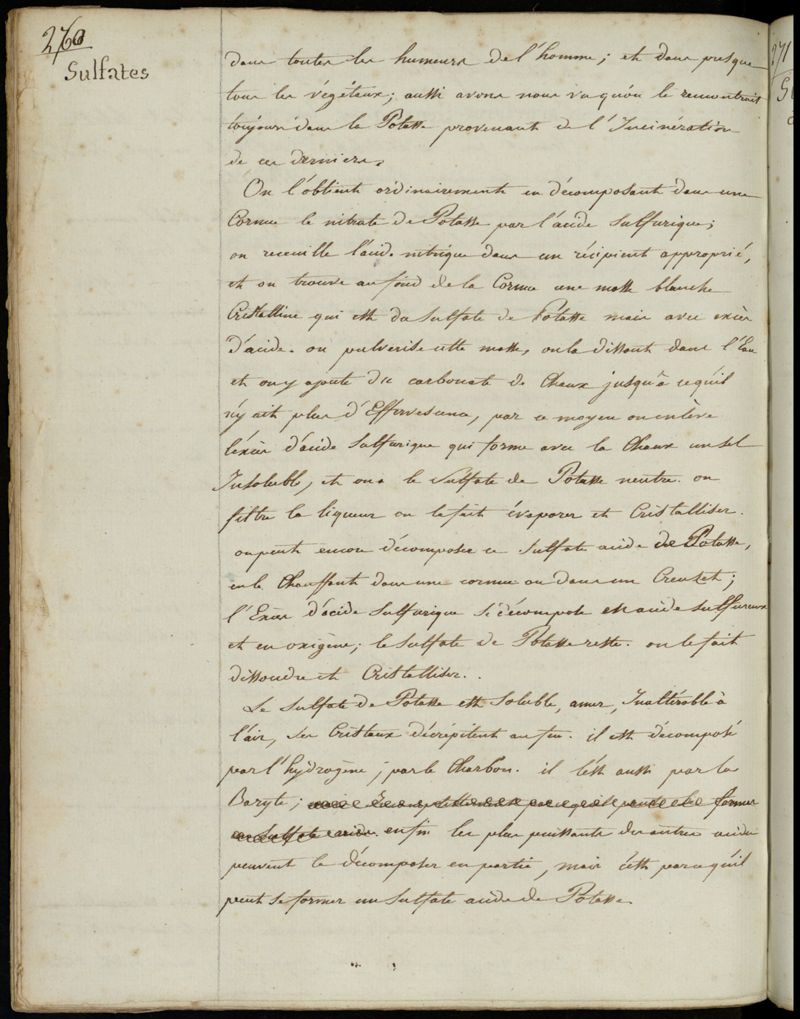 270
Sulfates
dans toutes les humeurs de l'homme; et dans presque
tous les végétaux; aussi avons nous vu qu'on le rencontrait
toujours dans la Potasse provenant de l'Incinération
de ces derniers.
On l'obtient ordinairement en décomposant dans une
Cornue le nitrate de Potasse par l'acide Sulfurique;
on receuille l'acide nitrique dans un récipient approprié,
et on trouve au fond de la Cornue une masse blanche
Cristalline qui est du Sulfate de Potasse mais avec excès
d'acide. on pulverise cette masse, on la dissout dans l'Eau
et on y ajoute du carbonate de Chaux jusqu'à ce qu'il
n'y ait plus d'Effervescence, par ce moyen on enlève
l'excès d'acide Sulfurique qui forme avec la Chaux un sel
Insoluble, et on a le Sulfate de Potasse neutre. on
filtre la liqueur on le fait évaporer et Cristalliser.
on peut encore décomposer ce Sulfate acide de Potasse,
en le Chauffant dans une cornue ou dans un Creuzet;
l'Excès d'acide Sulfurique se décompose en acide sulfureux
et en oxigène; le Sulfate de Potasse reste. on le fait
dissoudre et Cristalliser.
Le Sulfate de Potasse est Soluble, amer, Inaltérable à
l'air, ses Cristaux décrépitent au feu. il est décomposé
par l'hydrogène; par le Charbon. il l'est aussi par la
Baryte; former
Sulfate acide. enfin les plus puissants des autres acides
peuvent le décomposer en partie, mais c'est parcequ'il
peut se former un Sulfate acide de Potasse.
271